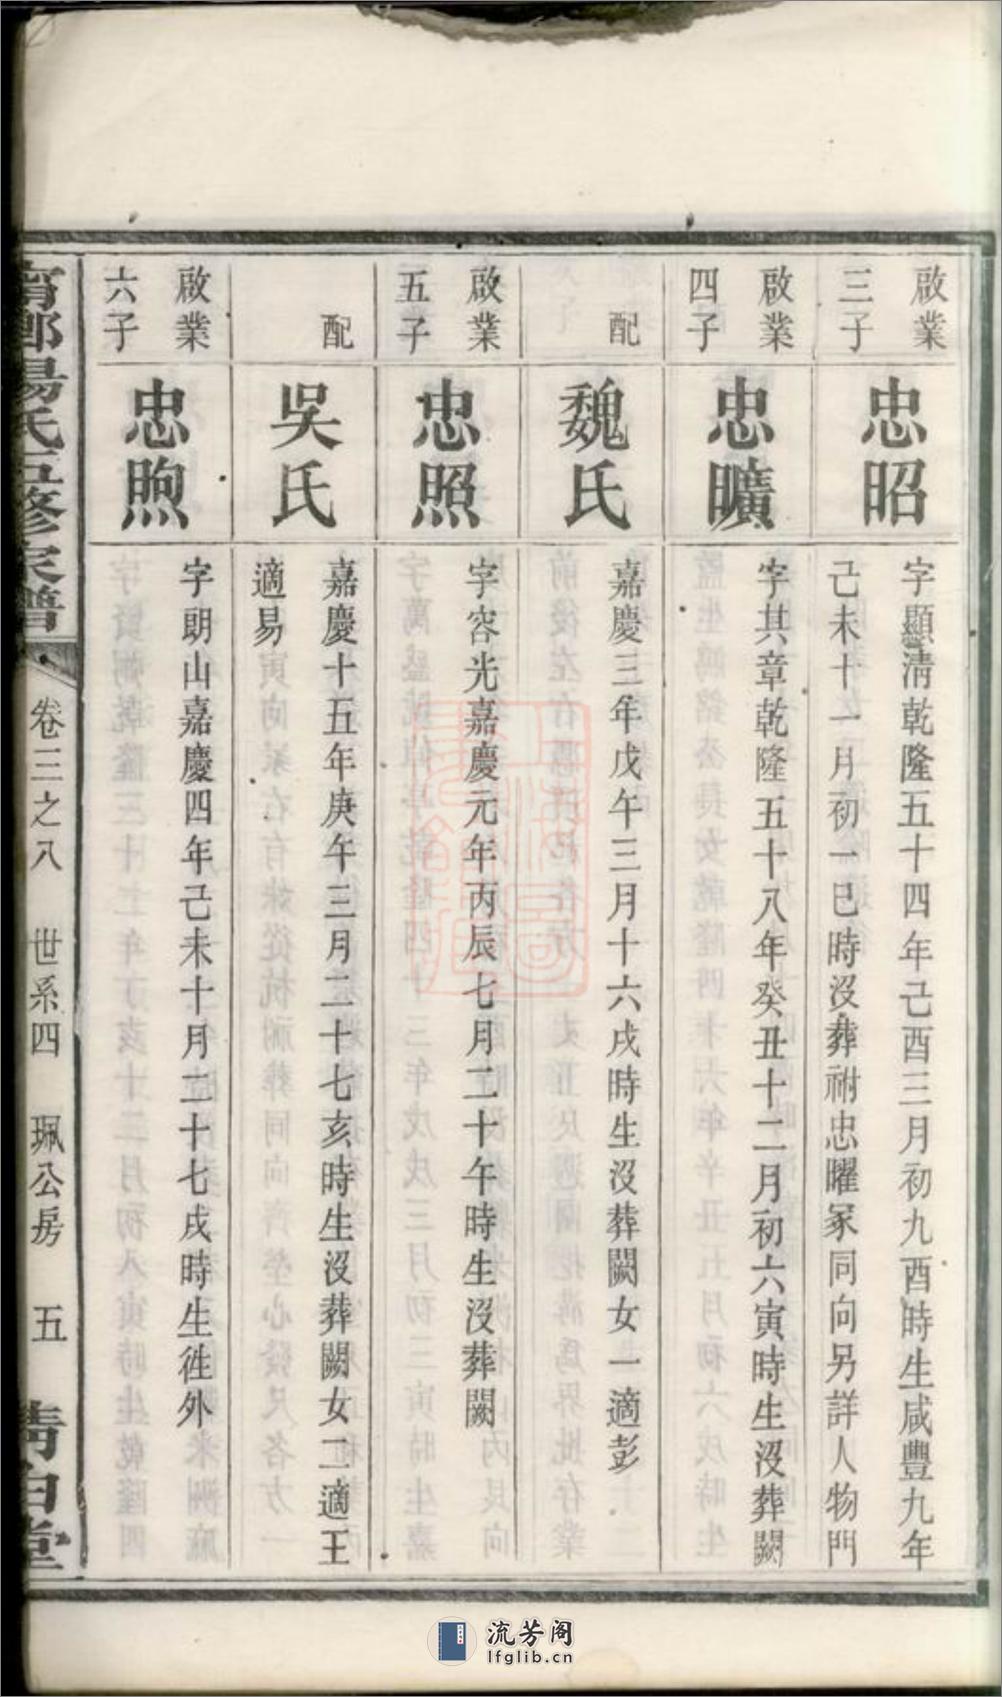 啟業
三子
忠昭
字顯淸乾隆五十四年己酉三月初九酉時生咸豐九年
己未十一月初一巳時沒葬祔忠曜冢同向另詳人物門
啟業
四子
忠曠
字其章乾隆五十八年癸丑十二月初六寅時生沒葬闕
配
魏氏
嘉慶三年戊午三月十六戌時生沒葬闕女一適彭
啟業
五子
忠照
字容光嘉慶元年丙辰七月二十午時生沒葬闕
配
吳氏
嘉慶十五年庚午三月二十七亥時生沒葬闕女二適王
適易
啟業
六子
忠煦
字朗山嘉慶四年己未十月二十七戌時生徃外
湯氏五修家譜
卷三之八 世系四 珮公房 五 靑白堂
流芳阁
lfglib.cn